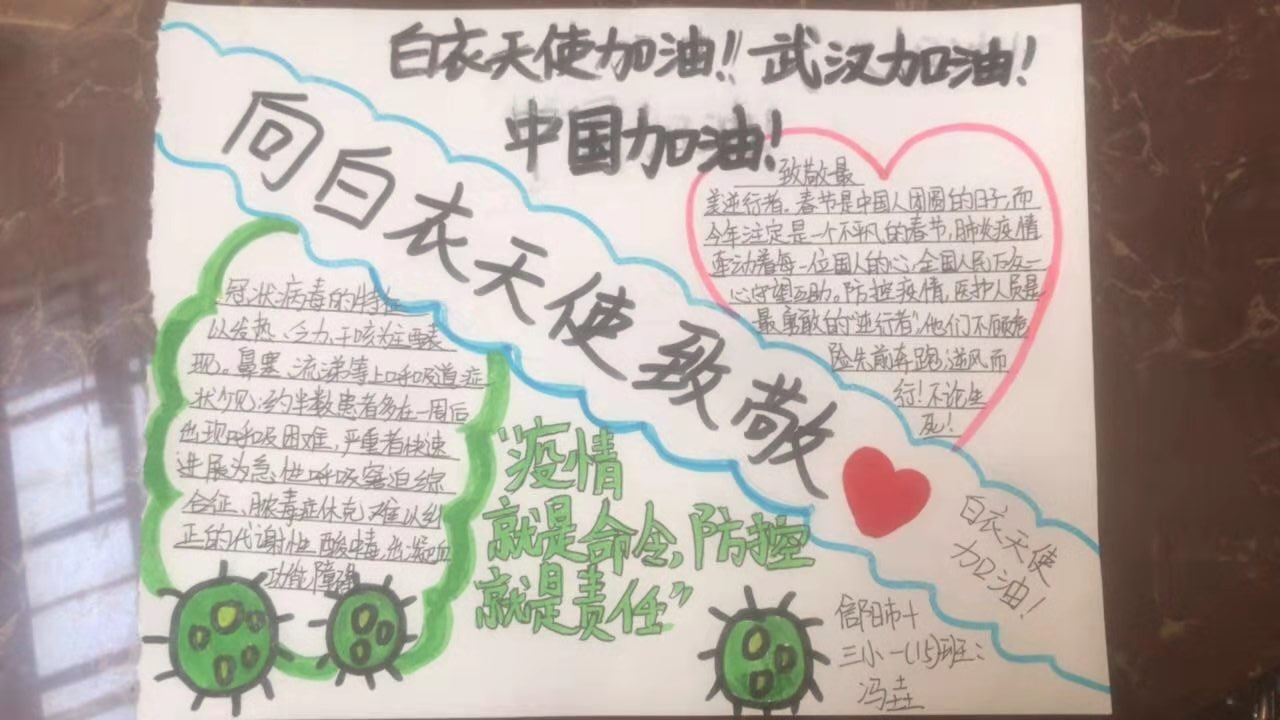 白衣天使加油!! 武汉加油!
中国加油!
向白衣天使致敬
致敬最
美逆行者。春节是中国人团圆的日子,而
今年注定是一个不平凡的春节,肺炎疫情
牵动着每一位国人的心,全国人民万众一
心守望互助。防控疫情,医护人员是
最勇敢的“逆行者”,他们不顾危
险先前奔跑,逆风而
行!不论生
死!
冠状病毒的特征
以发热、乏力、干咳为主要表
现。鼻塞、流涕等上呼吸道症
状少见,约半数患者多在一周后
出现呼吸困难,严重者快速
进展为急性呼吸窘迫综
合征、脓毒症休克,难以纠
正的代谢性酸中毒,出凝血
功能障碍
“疫情
就是命令,防控
就是责任”
白衣天使
加油!
信阳市十
三小一(15)班:
冯垚